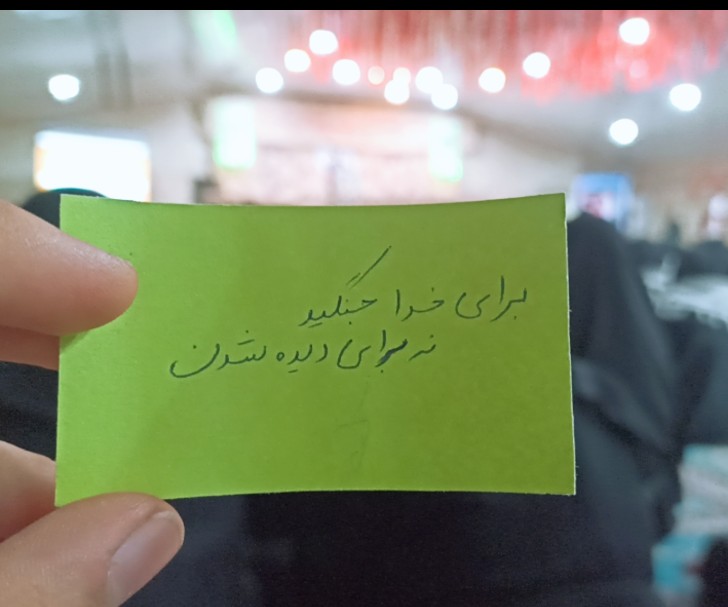 برای خدا جنگید
نه برای دیده شدن